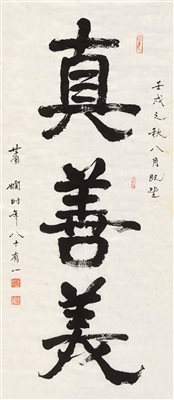 壬戌之秋八月既望
真善美
蕭嫻时年八十有一